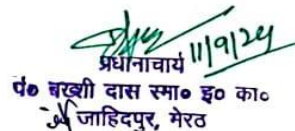 11/9/24
प्रधानाचार्य
पं० बख्शी दास स्मा० इ० का०
जाहिदपुर, मेरठ